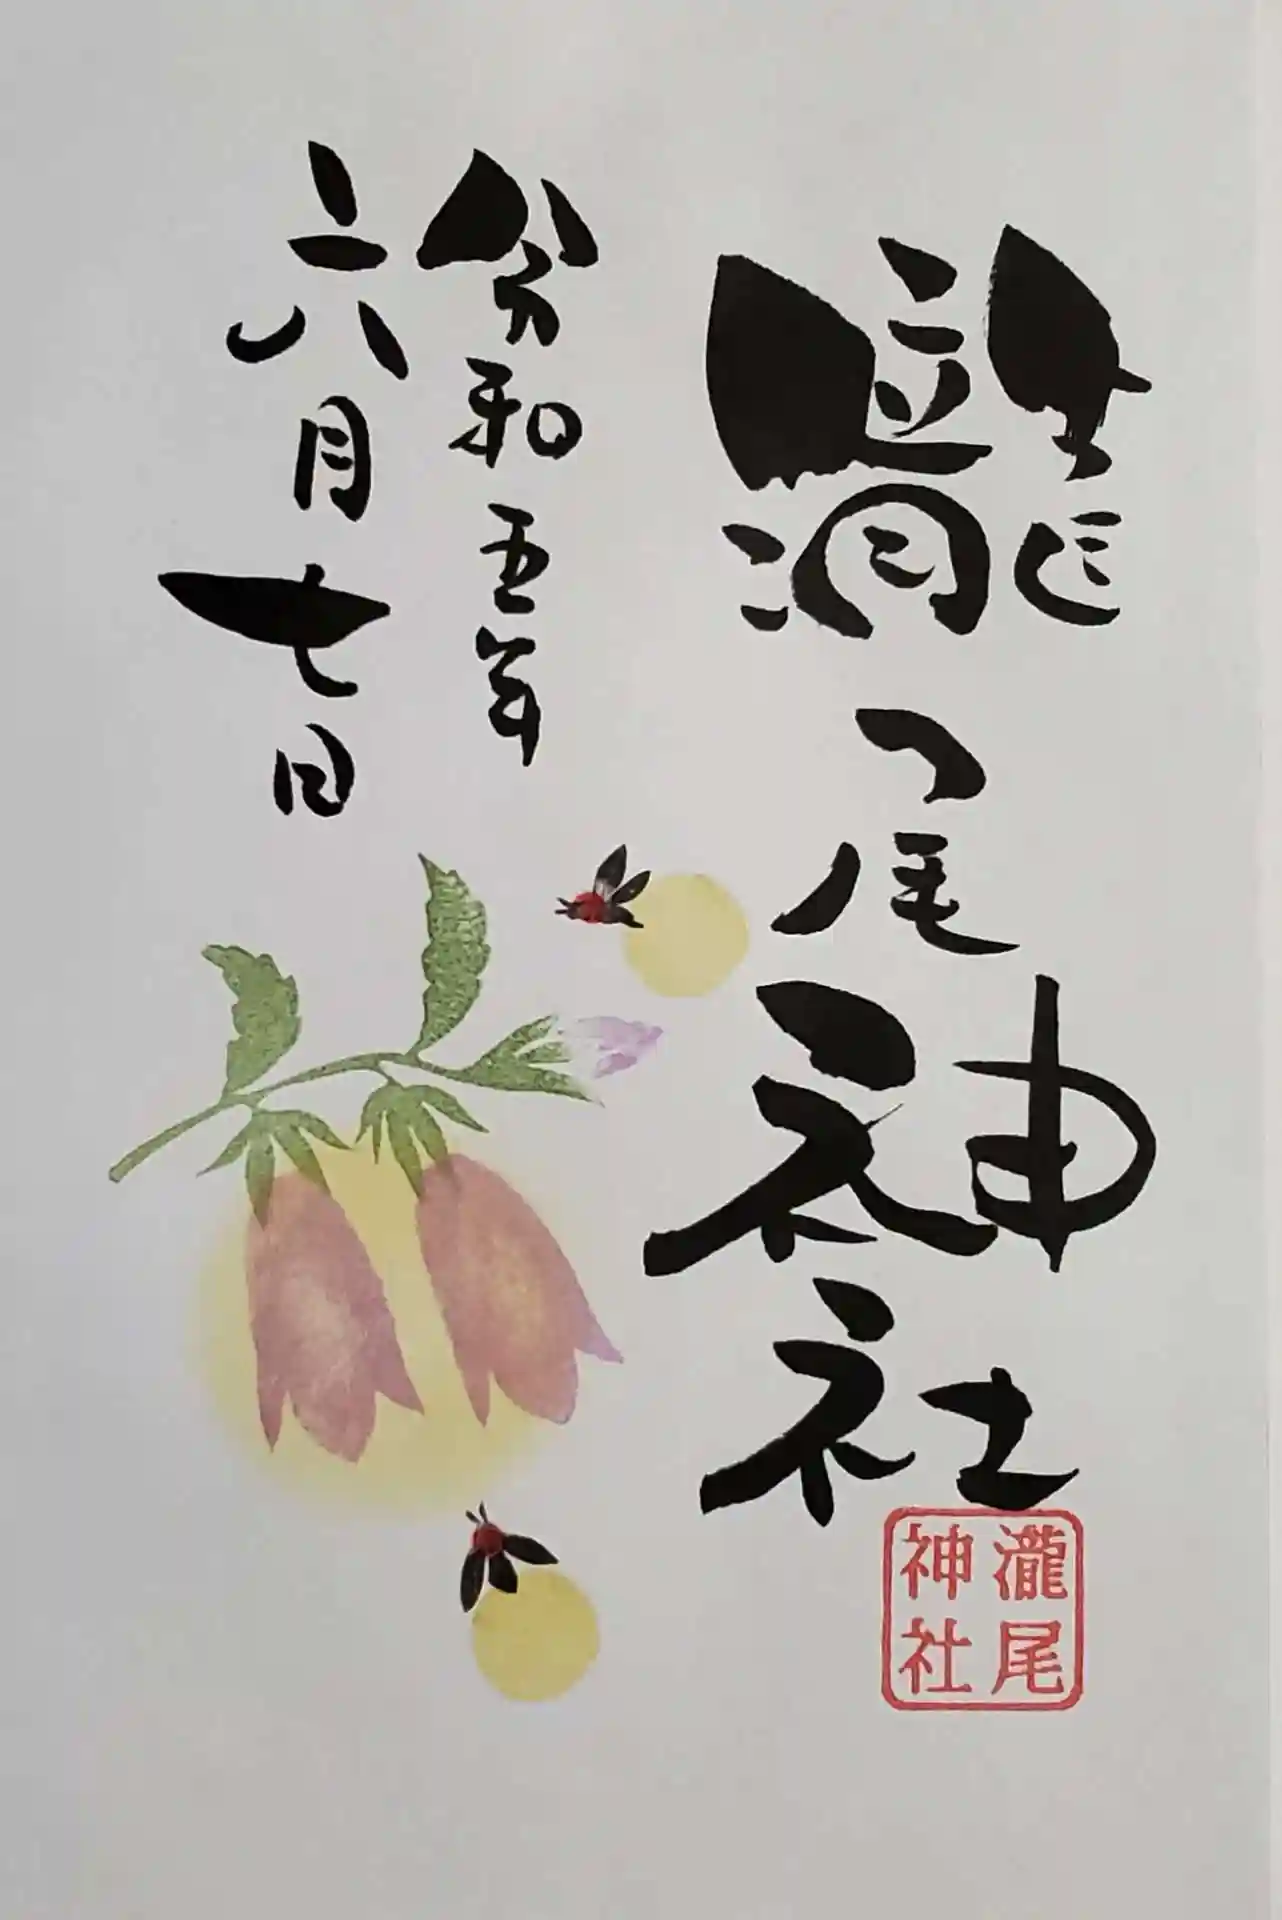 瀧尾神社
令和五年
六月七日
瀧尾
神社